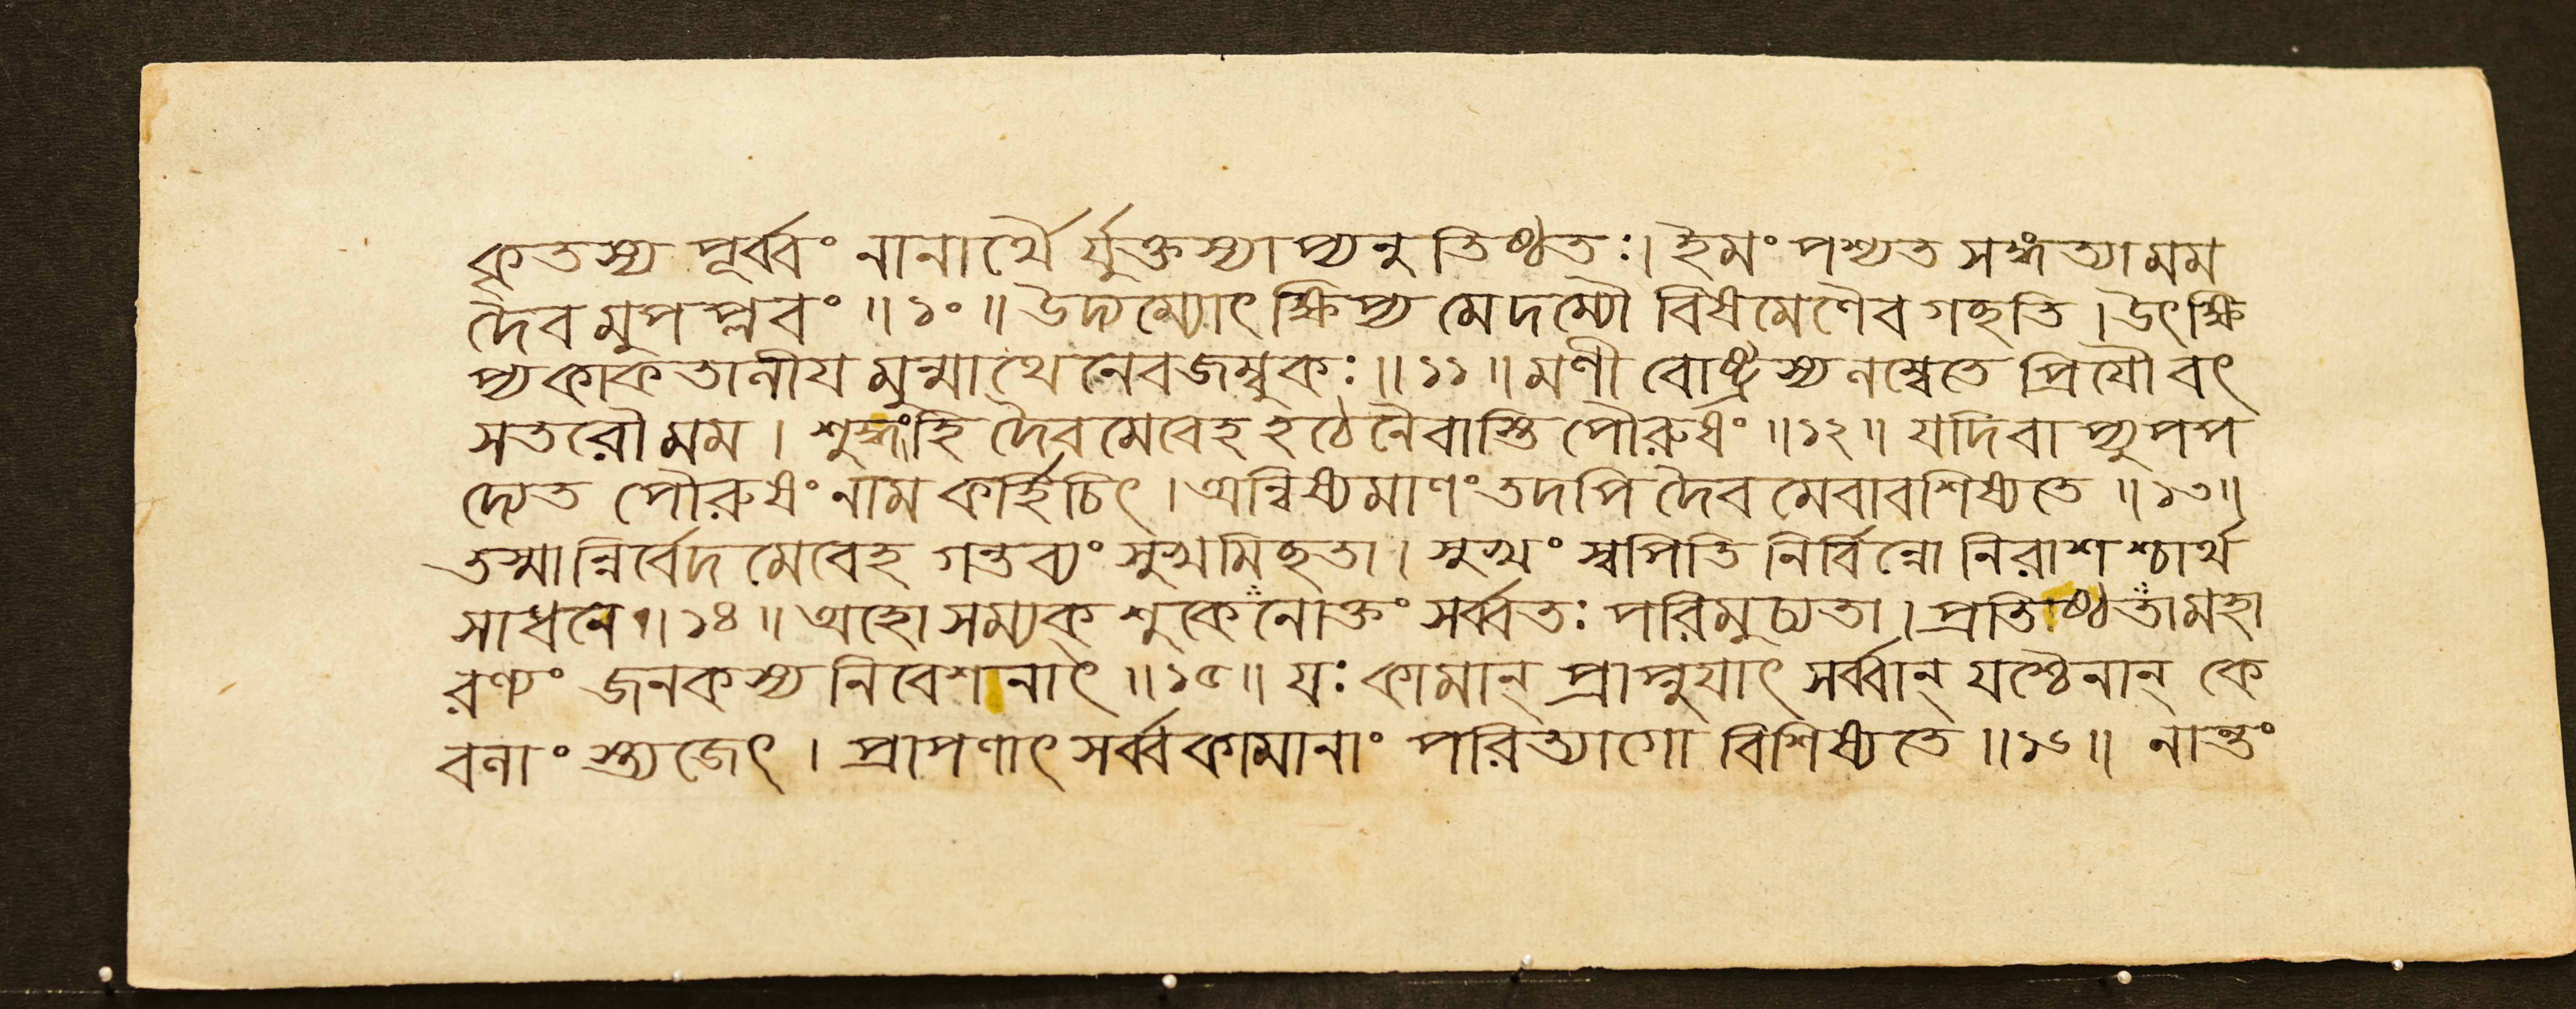 কৃতস্য পূর্ব্বং নানার্থৈ র্যুক্তস্যাপ্যনুতিষ্ঠতঃ। ইমং পশ্যত সঙ্গত্যা মম
দৈবমুপপ্লবং ॥ ১০ ॥ উদ্যম্যোৎক্ষিপ্য মে দম্যৌ বিষমেণৈব গচ্ছতি । উৎক্ষি
প্য কাকতালীয মুন্মাথেনেব জম্বুকঃ ॥ ১১ ॥ মণী বোষ্ট্রস্য লম্বেতে প্রিযৌ বৎ
সতরৌ মম । শুদ্ধং হি দৈবমেবেহ হঠেনৈবাস্তি পৌরুষং ॥ ১২ ॥ যদি বাপ্যুপপ
দ্যেত পৌরুষং নাম কর্হিচিৎ । অন্বিষ্যমাণং তদপি দৈবমেবাবশিষ্যতে ॥ ১৩ ॥
তস্মান্নির্বেদ মেবেহ গন্তব্যং সুখমিছতা । সুখং স্বপিতি নির্বিন্নো নিরাশশ্চার্থ
সাধনে ॥ ১৪ ॥ অহো সম্যক্ শুকেনোক্তং সর্ব্বতঃ পরিমুচ্যতা । প্রতিষ্ঠতা মহা
রণ্যং জনকস্য নিবেশনাৎ ॥ ১৫ ॥ যঃ কামান্ প্রাপ্নুযাৎ সর্ব্বান্ যশ্চৈনান্ কে
বলাং স্ত্যজেৎ । প্রাপণাৎ সর্ব্বকামানাং পরিত্যাগো বিশিষ্যতে ॥ ১৬ ॥ নান্তং